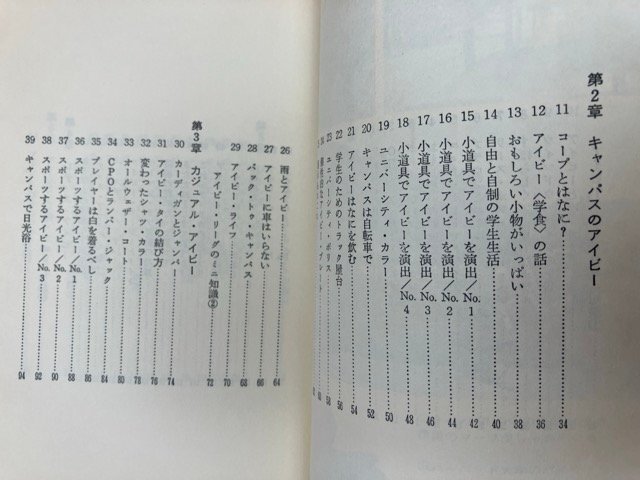 第2章 キャンパスのアイビー
11 コープとはなに?……34
12 アイビー〈学食〉の話……36
13 おもしろい小物がいっぱい……38
14 自由と自制の学生生活……40
15 小道具でアイビーを演出/No.1……42
16 小道具でアイビーを演出/No.2……44
17 小道具でアイビーを演出/No.3……46
18 小道具でアイビーを演出/No.4……48
19 ユニバーシティ・カラー……50
20 キャンパスは自転車で……52
21 アイビーはなにを飲む……54
22 学生のためのトラック屋台……56
23 ユニバーシティ・ポリス……58
26 雨とアイビー……64
27 アイビーに車はいらない……66
28 バック・トゥ・キャンパス……68
29 アイビー・ライフ……70
アイビー・リーグのミニ知識②……72
第3章 カジュアル・アイビー
30 カーディガンとジャンパー……74
31 アイビー・タイの結び方……76
32 変わったシャツ・カラー……78
33 オールウェザー・コート……80
34 CPOとランバー・ジャック……84
35 プレイヤーは白を着るべし……86
36 スポーツするアイビー/No.1……88
37 スポーツするアイビー/No.2……90
38 スポーツするアイビー/No.3……92
39 キャンパスで日光浴……94